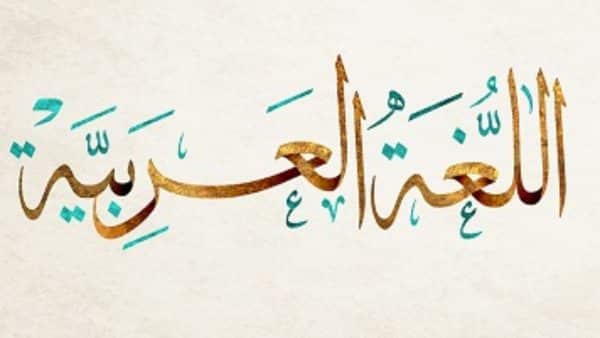 اللُّغَةُ الْعَرَبِيَّةُ